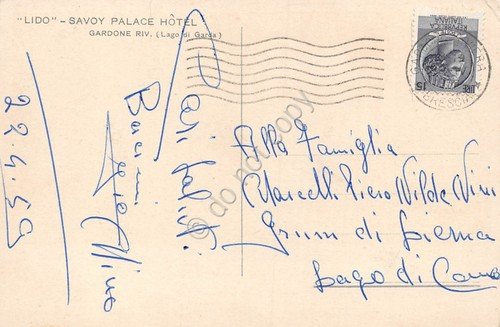 "LIDO" - SAVOY PALACE HÔTEL
GARDONE RIV. (Lago di Garda)
Cari saluti
Bacioni
Zio Nino
22.4.59
Alla Famiglia
Marcelli Piero Wilde Nini
Grum di Lierna
Lago di Como
LIRE 15
BRESCIA
do not copy